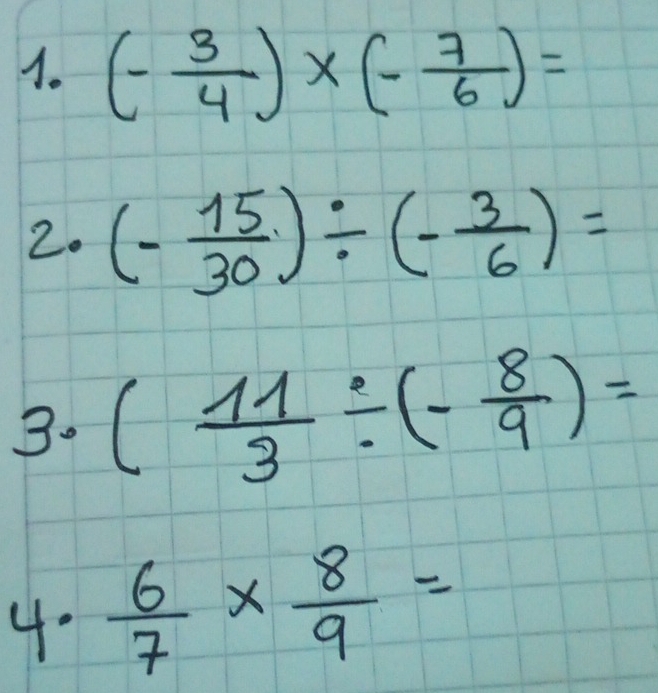 1. (- 3/4) × (- 7/6) =
2. (- 15/30) ÷ (- 3/6) =
3. ( 11/3 ÷ (- 8/9) =
4. 6/7 × 8/9 =